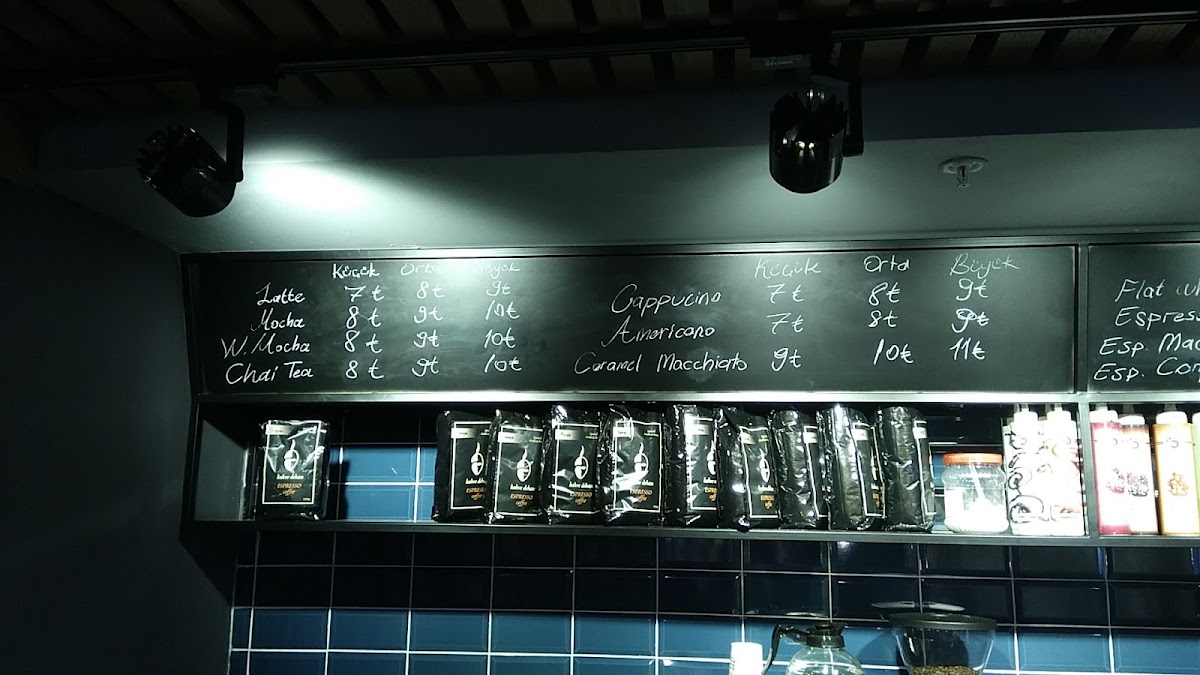 Küçük Orta Büyük
Latte 7₺ 8₺ 9₺
Mocha 8₺ 9₺ 10₺
W. Mocha 8₺ 9₺ 10₺
Chai Tea 8₺ 9₺ 10₺
Küçük Orta Büyük
Cappucino 7₺ 8₺ 9₺
Americano 7₺ 8₺ 9₺
Caramel Macchiato 9₺ 10₺ 11₺
Flat
Espress
Esp. Mac
Esp. Con
kahve dehası
ESPRESSO
coffee
kahve dehası
ESPRESSO
coffee
kahve dehası
ESPRESSO
coffee
kahve dehası
ESPRESSO
coffee